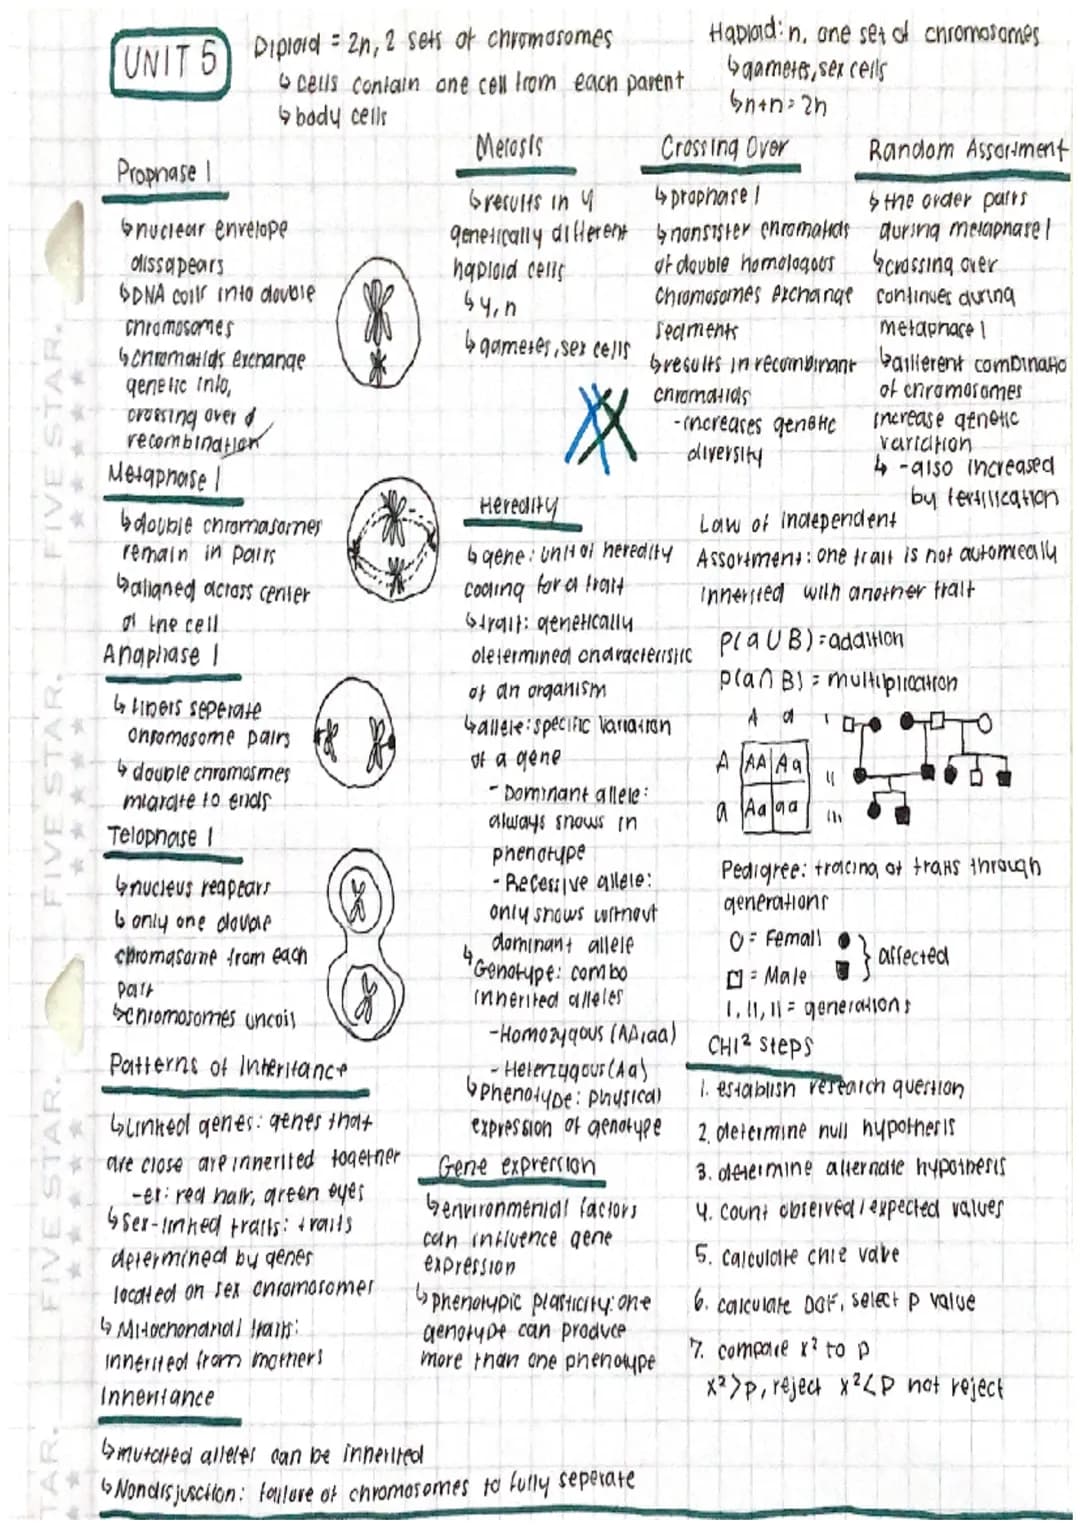 UNIT 5
Diploid = 2n, 2 sets of chromosomes
↳ cells contain one cell from each parent
↳ body cells
Haploid: n, one set of chromosomes
↳ gametes, sex cells
↳ n+n=2n
Prophase I
↳ nuclear envelope
dissapears
↳ DNA coils into double
chromosomes
↳ chromatids exchange
genetic info,
crossing over &
recombination
Metaphase I
↳ double chromosomes
remain in pairs
↳ aligned across center
of the cell
Anaphase I
↳ fibers seperate
chromosome pairs
↳ double chromosmes
migrate to ends
Telophase I
↳ nucleus reapears
↳ only one double
chromosome from each
pair
↳ chromosomes uncoil
Patterns of Inheritance
↳ Linked genes: genes that
are close are inherited together
-ex: red hair, green eyes
↳ Sex-linked traits: traits
determined by genes
located on sex chromosomes
↳ Mitochondrial traits:
inherited from mothers
Inheritance
↳ mutated alleles can be inherited
↳ Nondisjunction: failure of chromosomes to fully seperate
Meiosis
↳ results in 4
genetically different
haploid cells
↳ 4, n
↳ gametes, sex cells
Crossing Over
↳ prophase I
↳ nonsister chromatids
of double homologous
chromosomes exchange
segments
↳ results in recombinant
chromatids
-increases genetic
diversity
Random Assortment
↳ the order pairs
during metaphase I
↳ crossing over
continues during
metaphase I
↳ different combinatio
of chromosomes
increase genetic
variation
↳ -also increased
by fertilization
Heredity
↳ gene: unit of heredity
coding for a trait
↳ trait: genetically
determined characteristic
of an organism
↳ allele: specific variation
of a gene
- Dominant allele:
always shows in
phenotype
- Recessive allele:
only shows without
dominant allele
↳ Genotype: combo
inherited alleles
-Homozygous (AA,aa)
- Heterzygous (Aa)
↳ Phenotype: physical
expression of genotype
Gene expression
↳ environmental factors
can influence gene
expression
↳ phenotypic plasticity: one
genotype can produce
more than one phenotype
Law of Independent
Assortment: one trait is not automically
inherited with another trait
P(a ∪ B) = addition
P(a ∩ B) = multiplication
A a
A AA Aa
a Aa aa
I
II
III
Pedigree: tracing of traits through
generations
O = Female
□ = Male
} affected
I, II, II = generations
CHI² steps
1. establish research question
2. determine null hypothesis
3. determine alternate hypothesis
4. count observed / expected values
5. calculate chie valve
6. calculate DOF, select p value
7. compare x² to p
x²>p, reject x²<p not reject
FIVE STAR.
FIVE STAR.
FIVE STAR.
TAR.